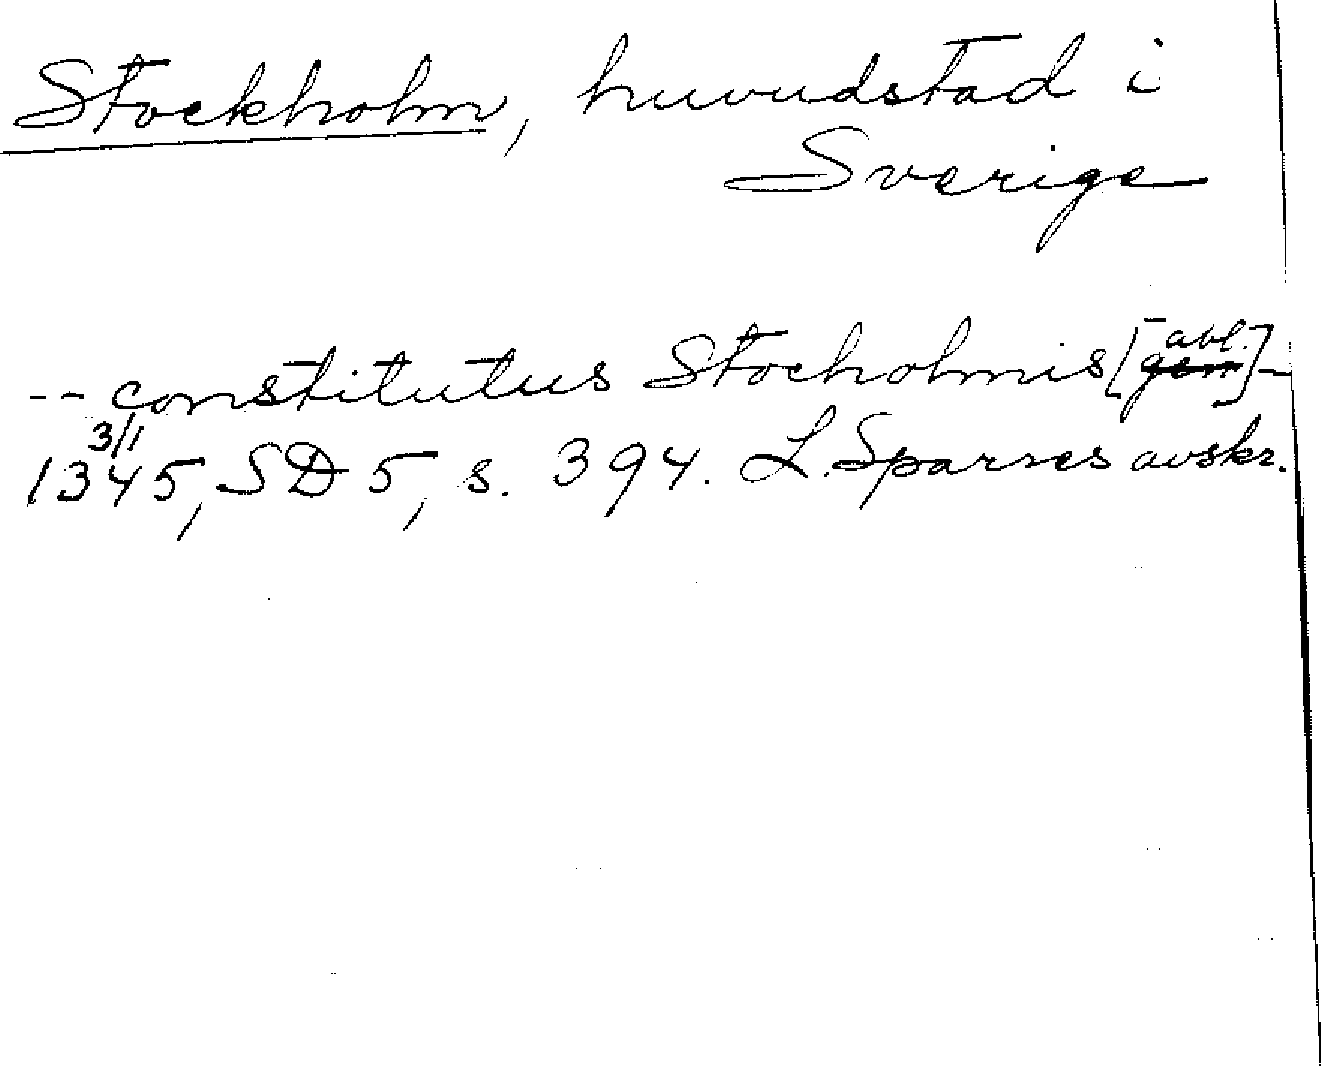 Stockholm, huvudstad i
Sverige
-- constitutus Stocholmis [abl. gen.] -
1345, 3/1 SD 5, s. 394. L. Sparres avskr.